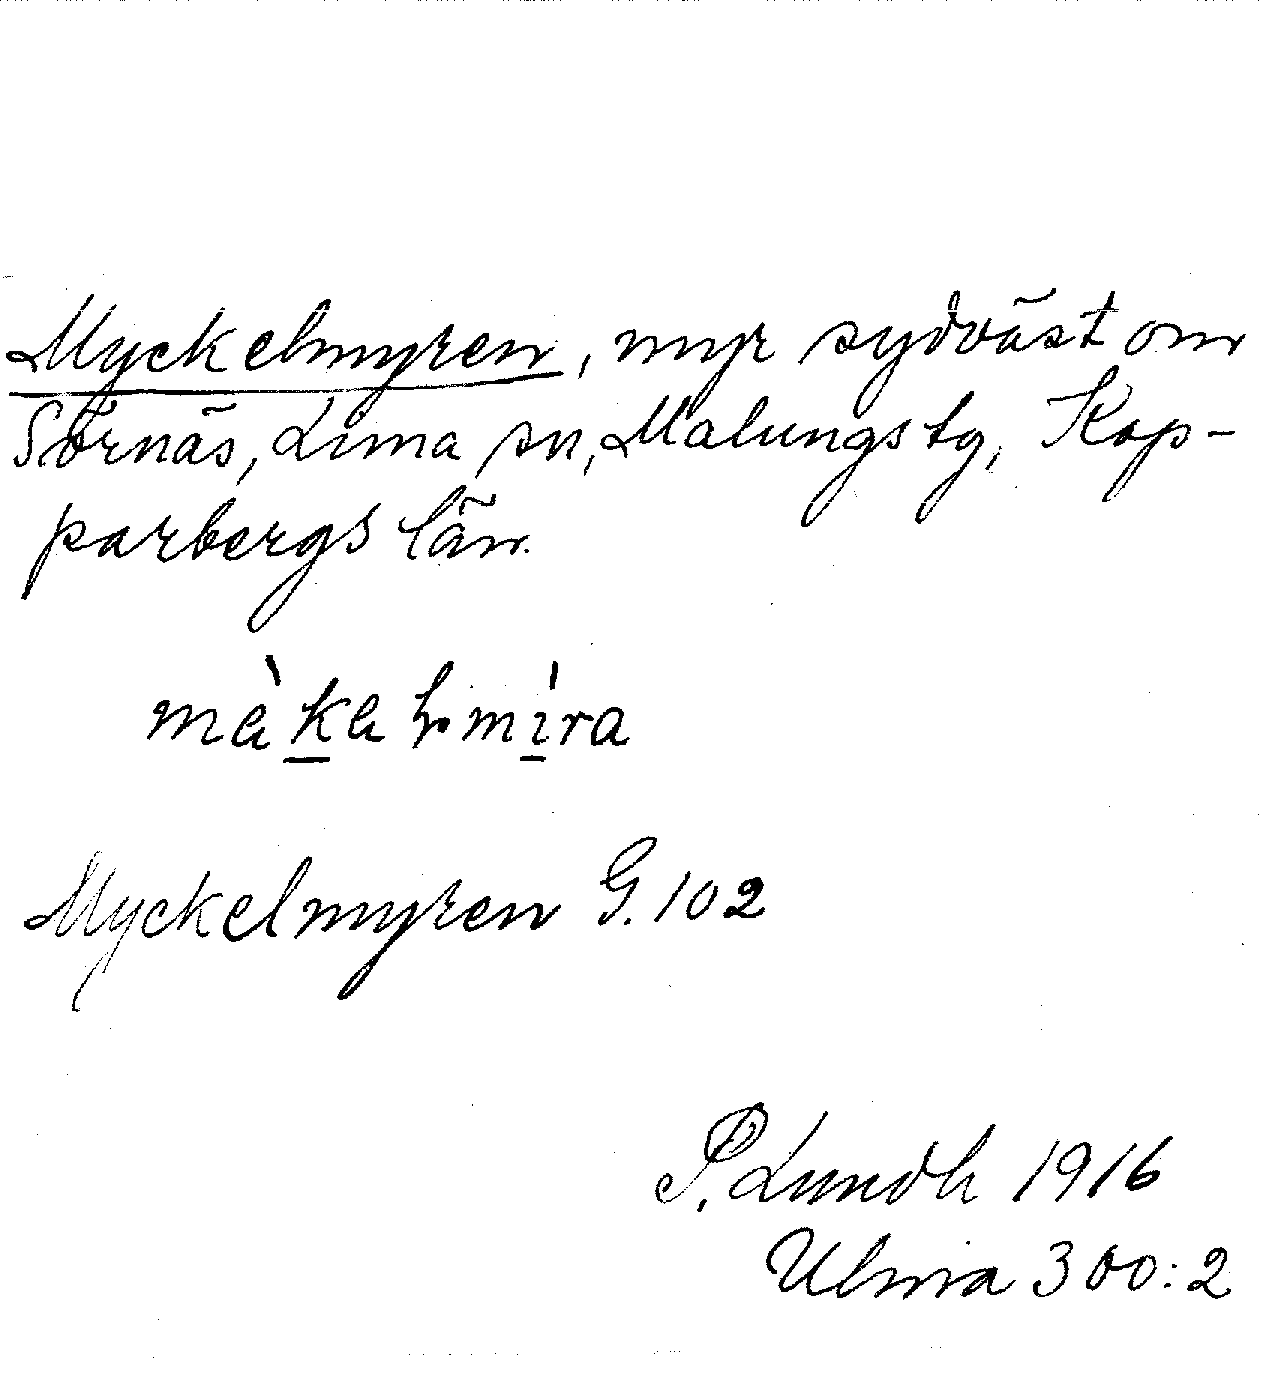 Myckelmyren, myr sydväst om
Sörnäs, Lima sn, Malungs tg, Kop-
parbergs län.
Myckelmyren G. 102
P. Lundh 1916
Ulma 300:2